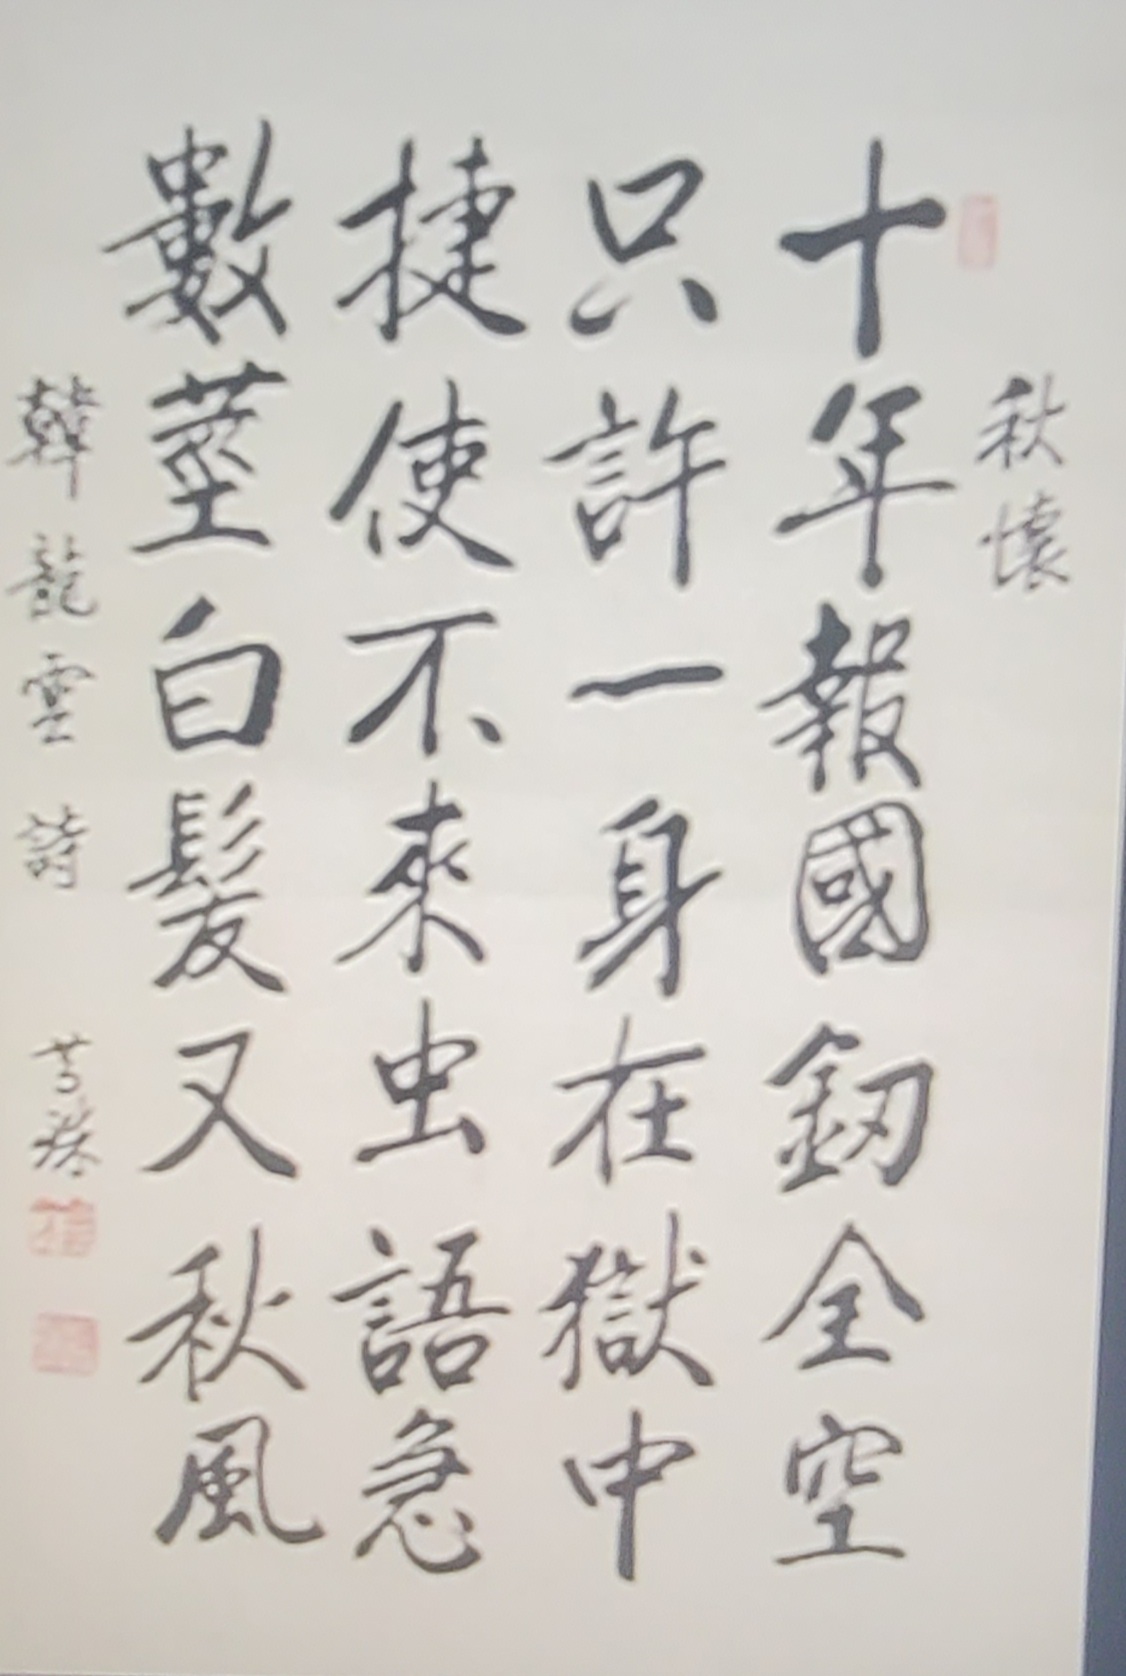 秋懷
十年報國釖全空
只許一身在獄中
捷使不來虫語急
數莖白髮又秋風
韓龍雲 詩